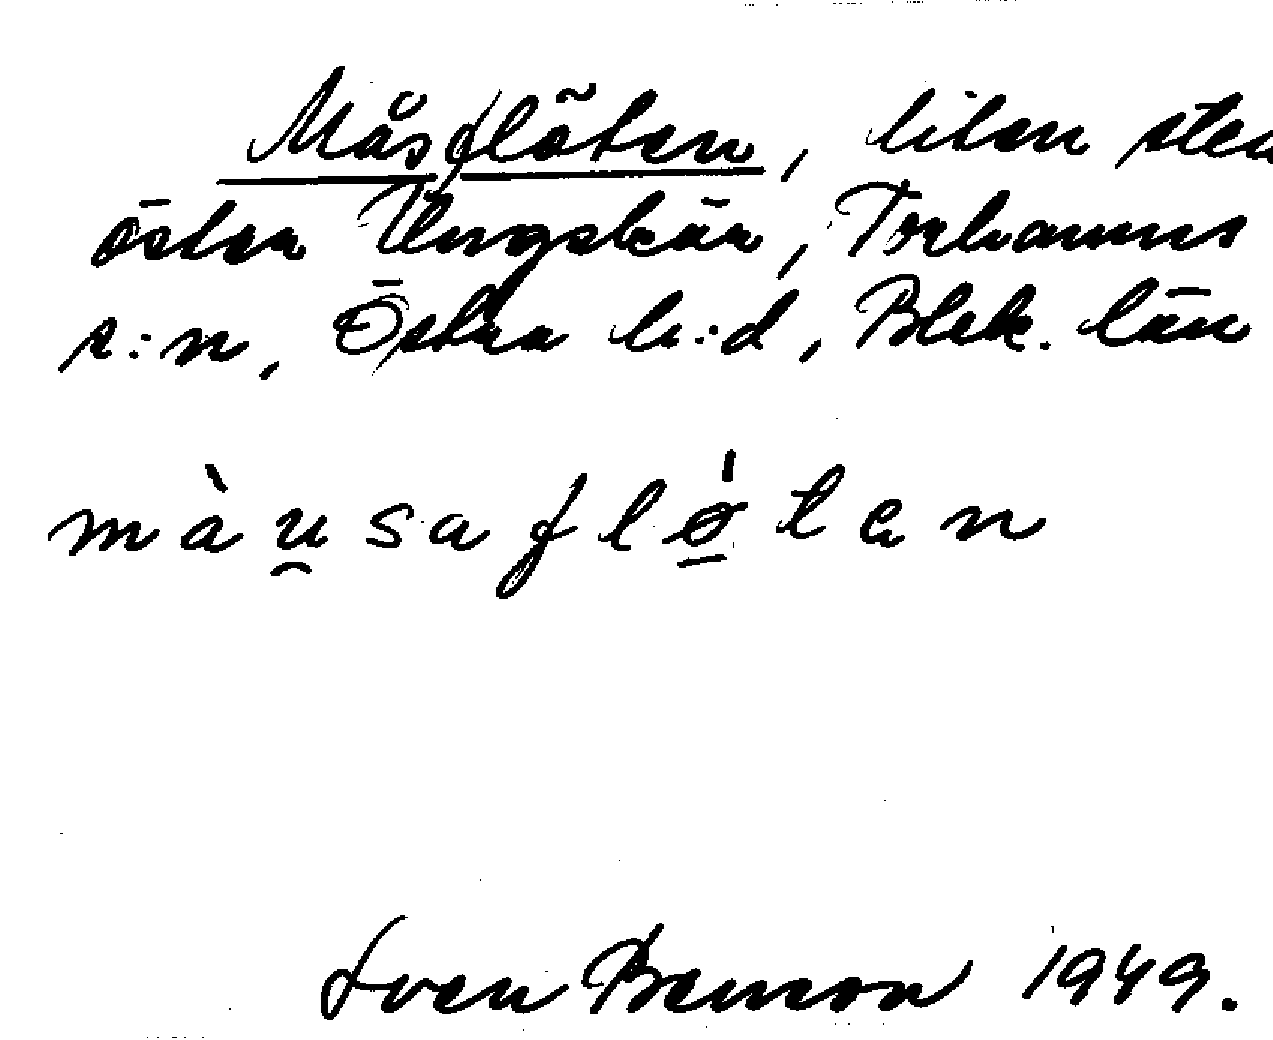 Måsflöten, liten
öster Ungskär, Torhamns
s:n, Östra h:d, Blek. län
màu̯saflø̱̍ten
Sven Benson 1949.